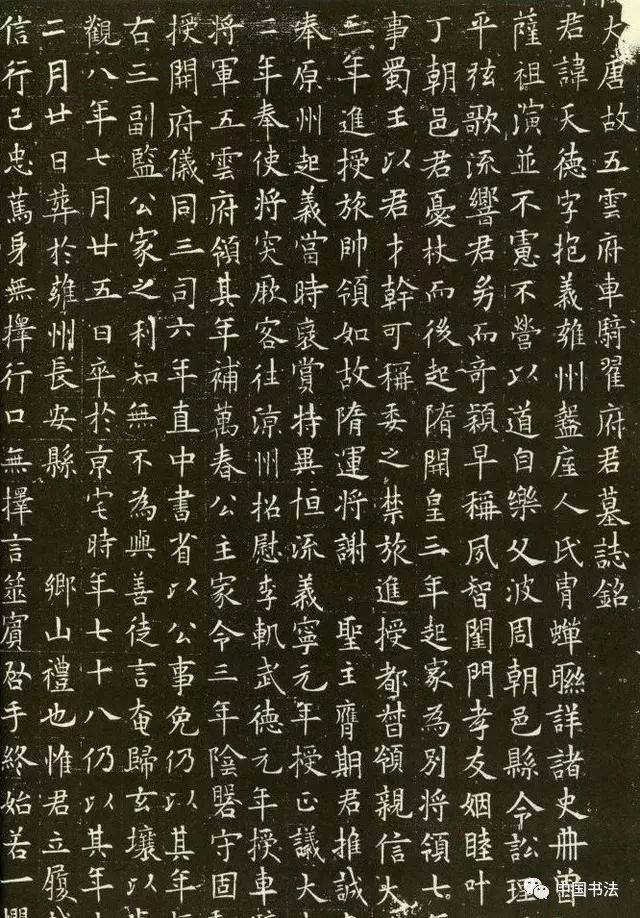 大唐故五雲府車騎翟府君墓誌銘
君諱天德字抱義雍州盩厔人氏胄蟬聯詳諸史冊曾
薩祖演並不憲不營以道自樂父波周朝邑縣令訟理
平弦歌流響君㓜而奇穎早稱夙智閨門孝友姻睦叶
丁朝邑君憂杖而後起隋開皇三年起家為別將領七
事蜀王以君才幹可稱委之禁旅進授都督領親信大
三年進授旅帥領如故隋運將謝 聖主膺期君推誠
奉原州起義當時裒賞特異恒流義寧元年授正議大
二年奉使將突厥客往涼州招慰李軌武德元年授車
將軍五雲府領其年補萬春公主家令三年陰磐守固
授開府儀同三司六年直中書省以公事免仍以其年
右三副監公家之利知無不為與善徒言奄歸玄壤以
觀八年七月廿五日卒於京宅時年七十八仍以其年
二月廿日葬於雍州長安縣 鄉山禮也惟君立履
信行己忠篤身無擇行口無擇言筮賓啓手終始若一
中国书法